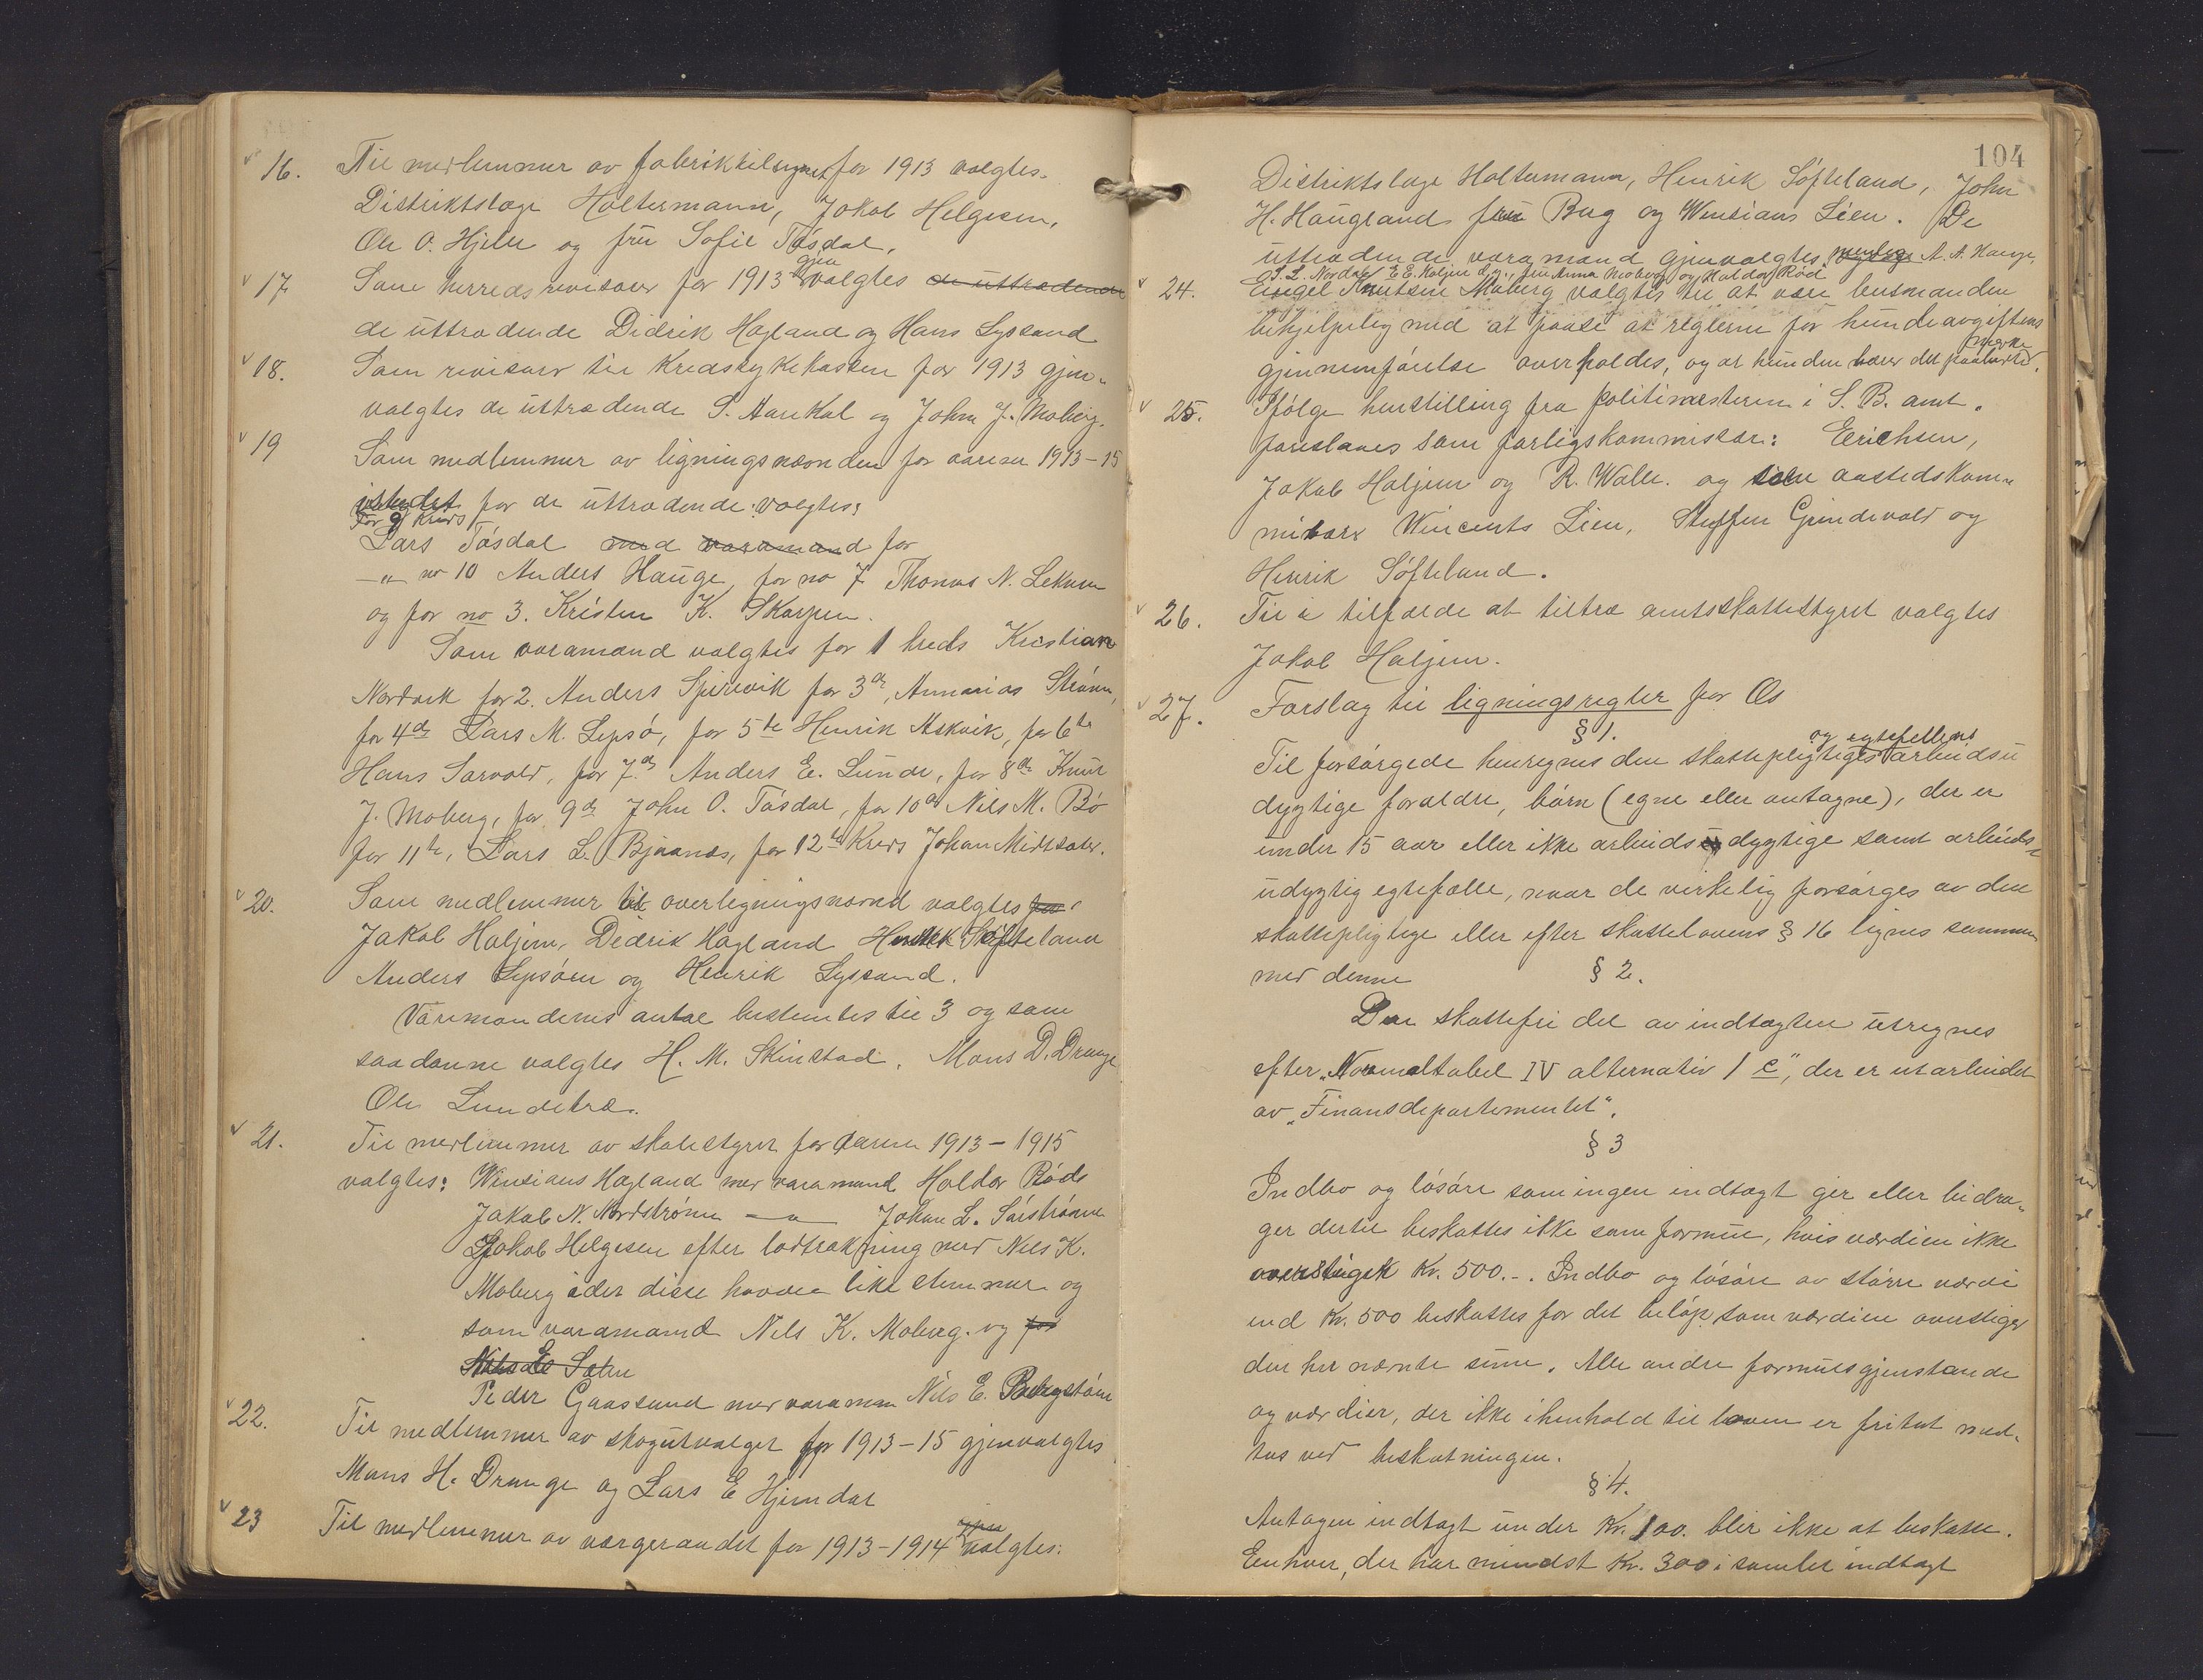 16. Til medlemmer av fabriktilsynet for 1913 valgtes.
Distriktslæge Holtermann, Jakob Helgesen,
Ole O. Hjelle og fru Sofie Tøsdal.
17. Som herredsrevisorer for 1913 gjen valgtes de uttrædende
de uttrædende Didrik Hagland og Hans Lyssand
18. Som revisorer til Kredssykekassen for 1913 gjen-
valgtes de uttrædende S. Aarekol og Johan J. Moberg.
19 Som medlemmer av ligningsnævnden for aarene 1913-15
istedet for de uttrædende valgtes:
For 9 Kreds
Lars Tøsdal med varamand for
—"— no 10 Anders Hauge, for no 7 Thomas N. Lekven
og for no 3. Kristen K. Skorpen.
Som varamænd valgtes for 1 kreds Kristian
Nordvik for 2. Anders Spirevik for 3de, Annanias Strønen,
for 4de Lars M. Lepsø, for 5te Henrik Askvik, for 6te
Hans Sørvold, for 7de Anders E. Lunde, for 8de Knut
J. Moberg, for 9de John O. Tøsdal, for 10de Nils M. Bø
for 11te, Lars L. Bjaanæs, for 12te Kreds Johan Midtsæter.
20. Som medlemmer til overligningsnævnd valgtes for
Jakob Haljem, Didrik Hagland Henrik Søfteland
Anders Lepsøen og Henrik Lyssand.
Varemændenes antal bestemtes til 3 og som
saadanne valgtes H. M. Skinstad. Mons D. Drange
Ole Lundetræ.
21. Til medlemmer av skolestyret for aarene 1913-1915
valgtes: Winsians Hagland med varamand Haldor Røde
Jakob N. Nordstrønen —"— Johan L. Sørstrønen
Jakob Helgesen efter lodtrækning med Nils K.
Moberg idet disse havde like stemmer og
som varamand Nils K. Moberg. og for
Nils E Sælen
Peder Gaassand med varaman Nils E. Bergstøen
22. Til medlemmer av skogutvalget for 1913-15 gjenvalgtes
Mons H. Drange og Lars E Hjemdal
23 Til medlemmer av værgeraadet for 1913-1914 gjen valgtes:
104
Distriktslæge Holtermann, Henrik Søfteland, John
H. Haugland fru Bug og Winsians Lien. De
uttrædende varamænd gjenvalgtes nemlig A. A. Hauge,
S. L. Nordal, E E. Haljem d.y., fru Anna Moberg og Haldor Rød
24. Engel Knutsen Moberg valgtes til at være lensmanden
behjelpelig med at paase at reglerne for hundeavgiftens
gjennemførelse overholdes, og at hunden bærer det paabudte merke.
25. Ifølge henstilling fra politimesteren i S. B. amt.
foreslaaes som forligskommissær: Eerichsen,
Jakob Haljem og R. Walle. og som aastedskom-
misærer Wincents Lien, Steffen Grindevold og
Henrik Søfteland.
26. Til i tilfælde at tiltræ amtsskattestyret valgtes
Jakob Haljem.
27. Forslag til ligningsregler for Os
§ 1.
Til forsørgede henregnes den skattepligtiges og egtefellens arbeidsu
dygtige forældre, børn (egne eller antagne), der er
under 15 aar eller ikke arbeidsdygtige samt arbeids-
udygtig egtefælle, naar de virkelig forsørges av den
skattepligtige eller efter skattelovens § 16 lignes sammen
med denne
§ 2.
Den skattefri del av indtægten utregnes
efter „Normaltabel IV alternativ 1 c", der er utarbeidet
av „Finansdepartementet".
§ 3
Indbo og løsøre som ingen indtægt gir eller bidra-
ger dertil beskattes ikke som formue, hvis værdien ikke
overstiger Kr. 500.-. Indbo og løsøre av større værdi
end Kr. 500 beskattes for det beløp som værdien overstiger
den her nævnte sum. Alle andre formuesgjenstande
og værdier, der ikke i henhold til loven er fritat med-
tas ved beskatningen.
§ 4.
Antagen indtægt under Kr. 100. blir ikke at beskatte.
Eenhver, der har mindst Kr. 300 i samlet indtægt